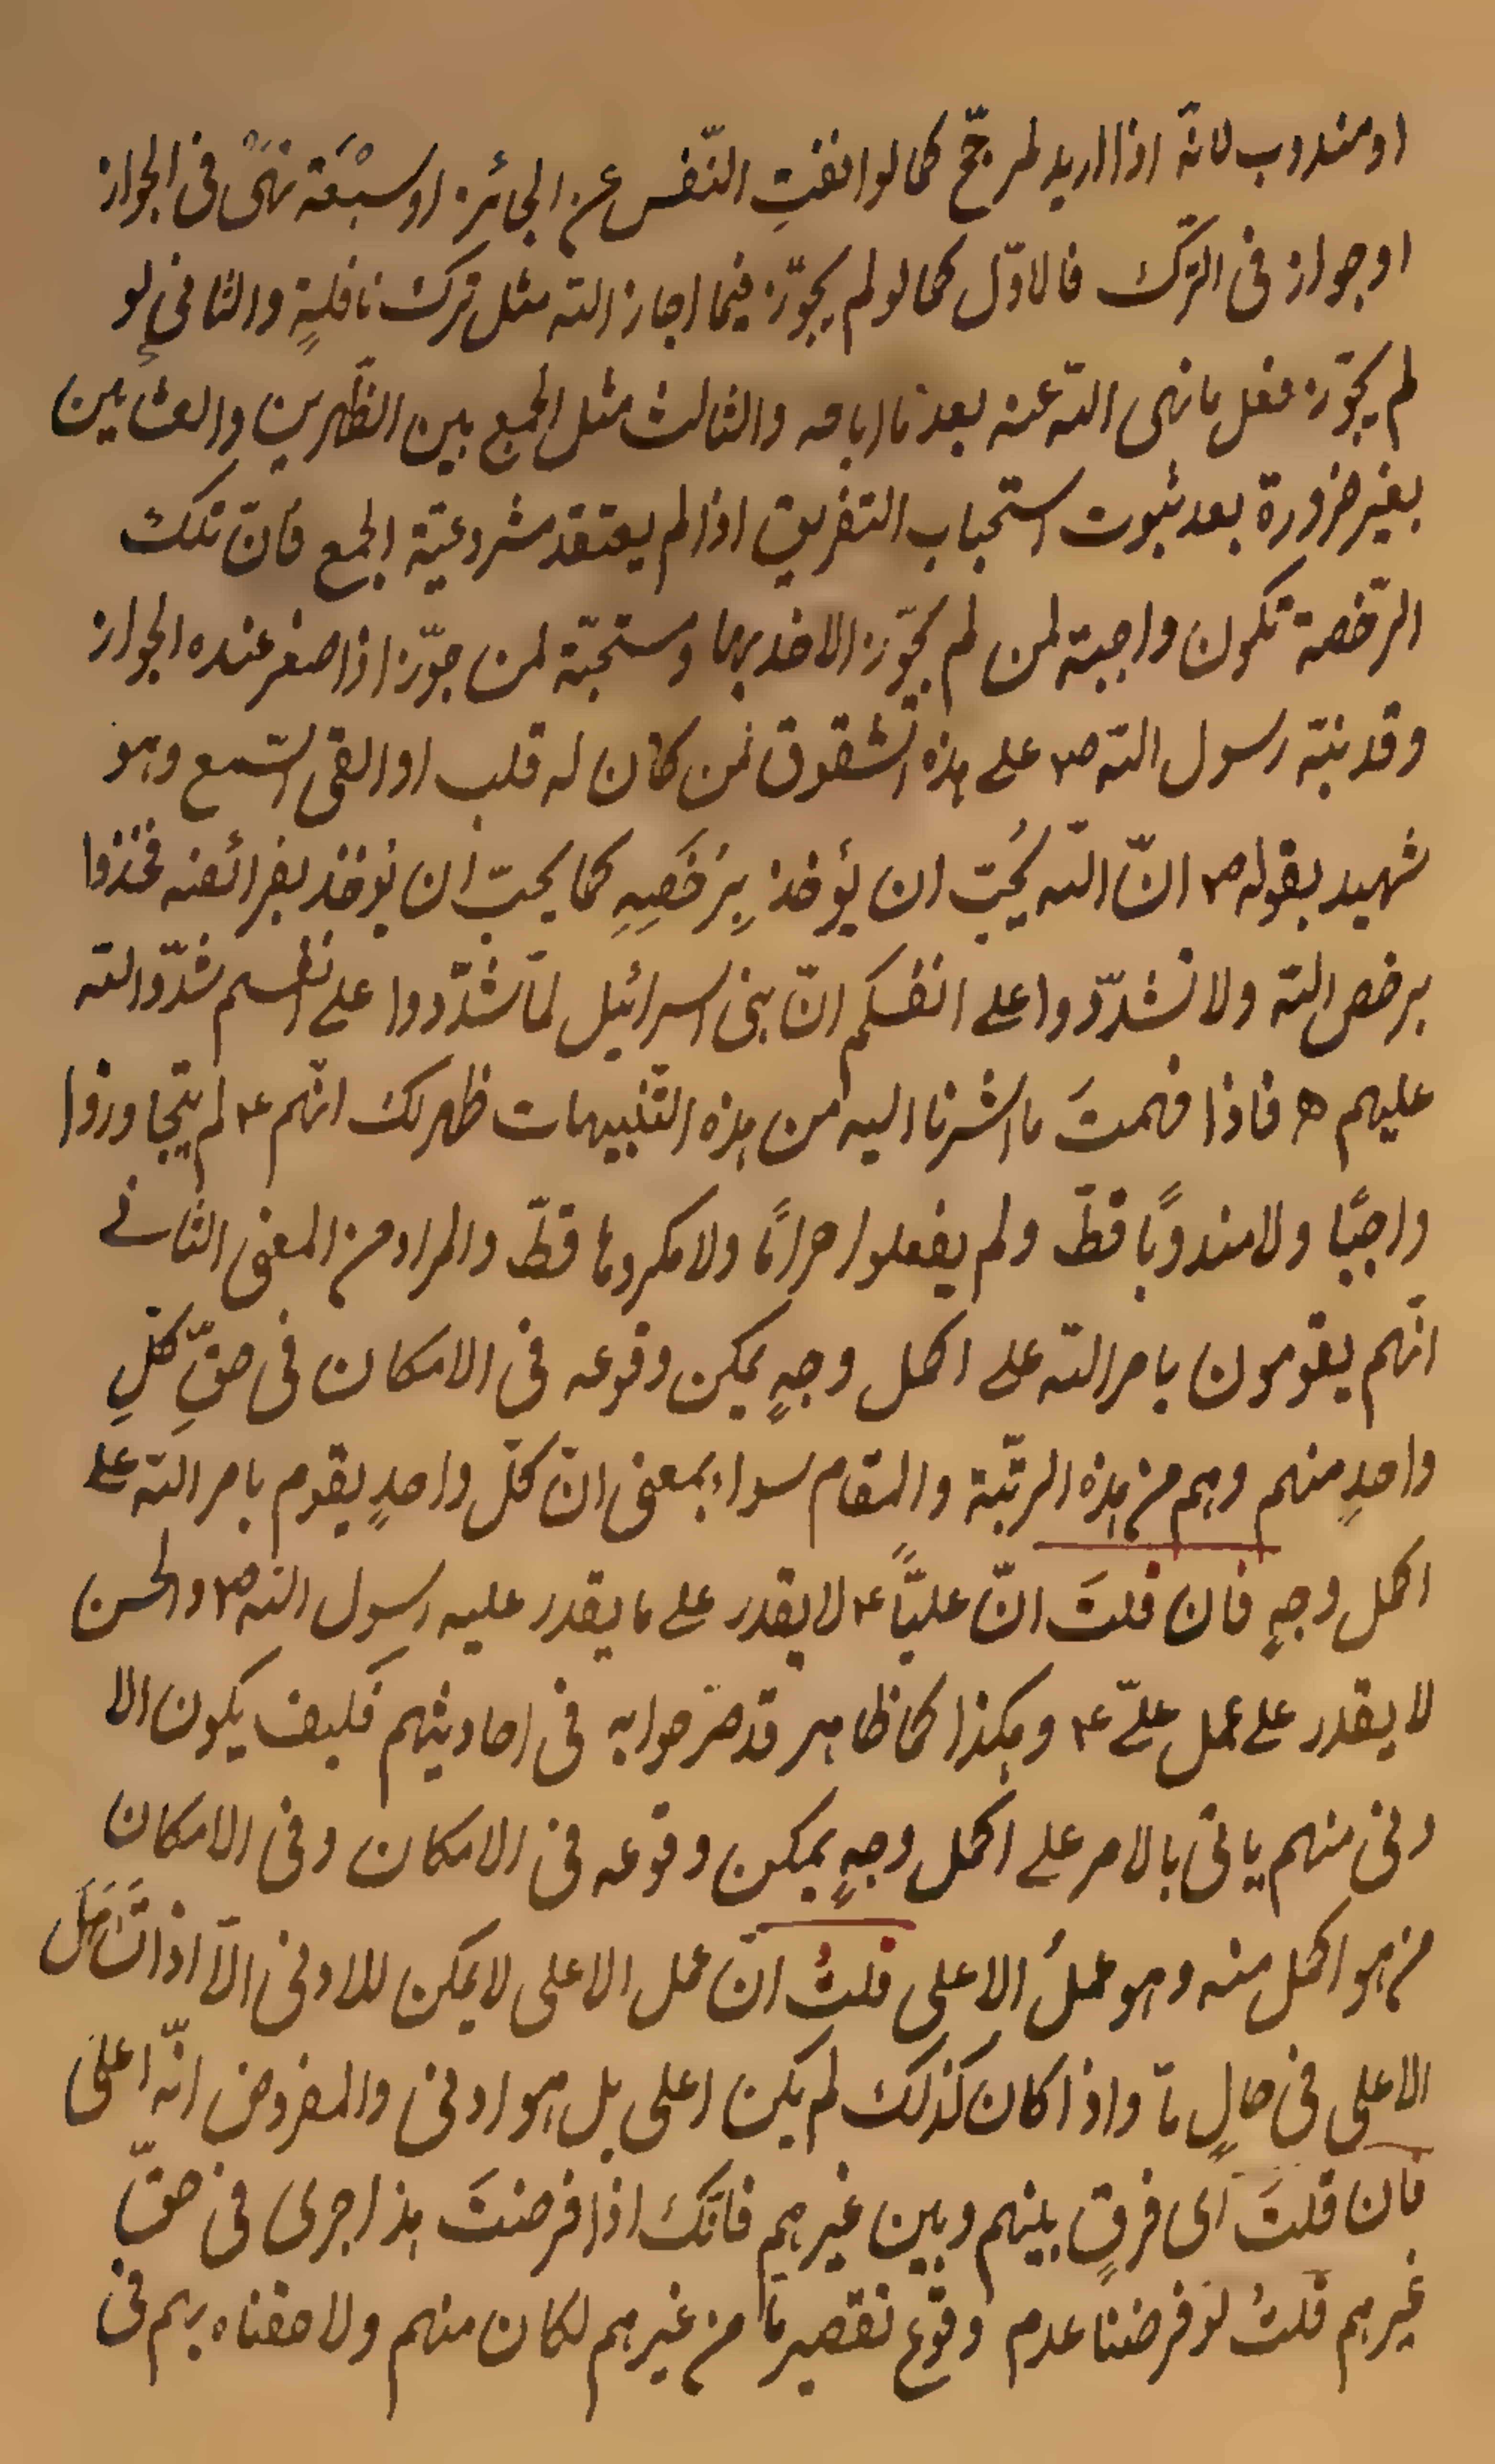 او مندوب لانه اذا اريد لمرجّح كما لو انفتِ النّفس عن الجائز او سبْقة نهىً فى الجواز
او جواز فى الترّك فالاوّل كما لو لم يجوّز فيما اجاز اللّه مثل ترك نافلةٍ والثانى لو
لم يجوّز فعل ما نهى اللّه عنه بعد ما اباحه والثالث مثل الجمع بين الظّهرين والعشائين
بغير ضرورة بعد ثبوت استحباب التفريق اذا لم يعتقد مشروعيّة الجمع فانّ تلك
الرّخصة تكون واجبة لمن لم يجوّز الاخذ بها ومستحبّة لمن جوّز اذا صغر عنده الجواز
وقد نبّه رسول اللّه ص٣ على هذه الشقوق لمن كان له قلب او القى السّمع وهو
شهيد بقوله ص٣ انّ اللّه يُحِبّ ان يؤخذ بِرُخَصِهِ كما يحبّ ان يؤخذ بفرائضه فخذوا
برخص اللّه ولا تشدّدوا على انفسكم انّ بنى اسرائيل لمّا شدّدوا على انفسهم شدّد اللّه
عليهم ه‍ فاذا فهمتَ ما اشرنا اليه من هذه التّنبيهات ظهر لك انّهم ع‍ لم يتجاوزوا
واجبًا ولا مندوبًا قطّ ولم يفعلوا حرامًا ولا مكروها قطّ والمراد من المعنى الثانى
انّهم يقومون بامر اللّه على اكمل وجهٍ يمكن وقوعه فى الامكان فى حقِّ كلِّ
واحدٍ منهم وهم من هذه الرتّبة والمقام سواء بمعنى انّ كلّ واحدٍ يقوم بامر اللّه على
اكمل وجهٍ فان قلتَ انّ عليّاً ع‍ لا يقدر على ما يقدر عليه رسول اللّه ص٣ والحسن
لا يقدر على عمل علىّ ع‍ وهكذا كما ظاهر قد صرّحوا به فى احاديثهم فكيف يكون الا
دنى منهم ياتى بالامر على اكمل وجهٍ يمكن وقوعه فى الامكان وفى الامكان
من هو اكمل منه وهو عملُ الاعلى قلتُ انّ عمل الاعلى لا يمكن للادنى الّا اذا تَسَافَلَ
الاعلى فى حالٍ مّا واذا كان كذلك لم يكن اعلى بل هو ادنى والمفروض انّه اعلى
فان قلتَ اى فرقٍ بينهم وبين غيرهم فانّك اذا فرضتَ هذا جرى فى حقّ
غيرهم قلتُ لو فرضنا عدم وقوع تقصير مّا من غيرهم لكان منهم ولاحقناه بهم فى